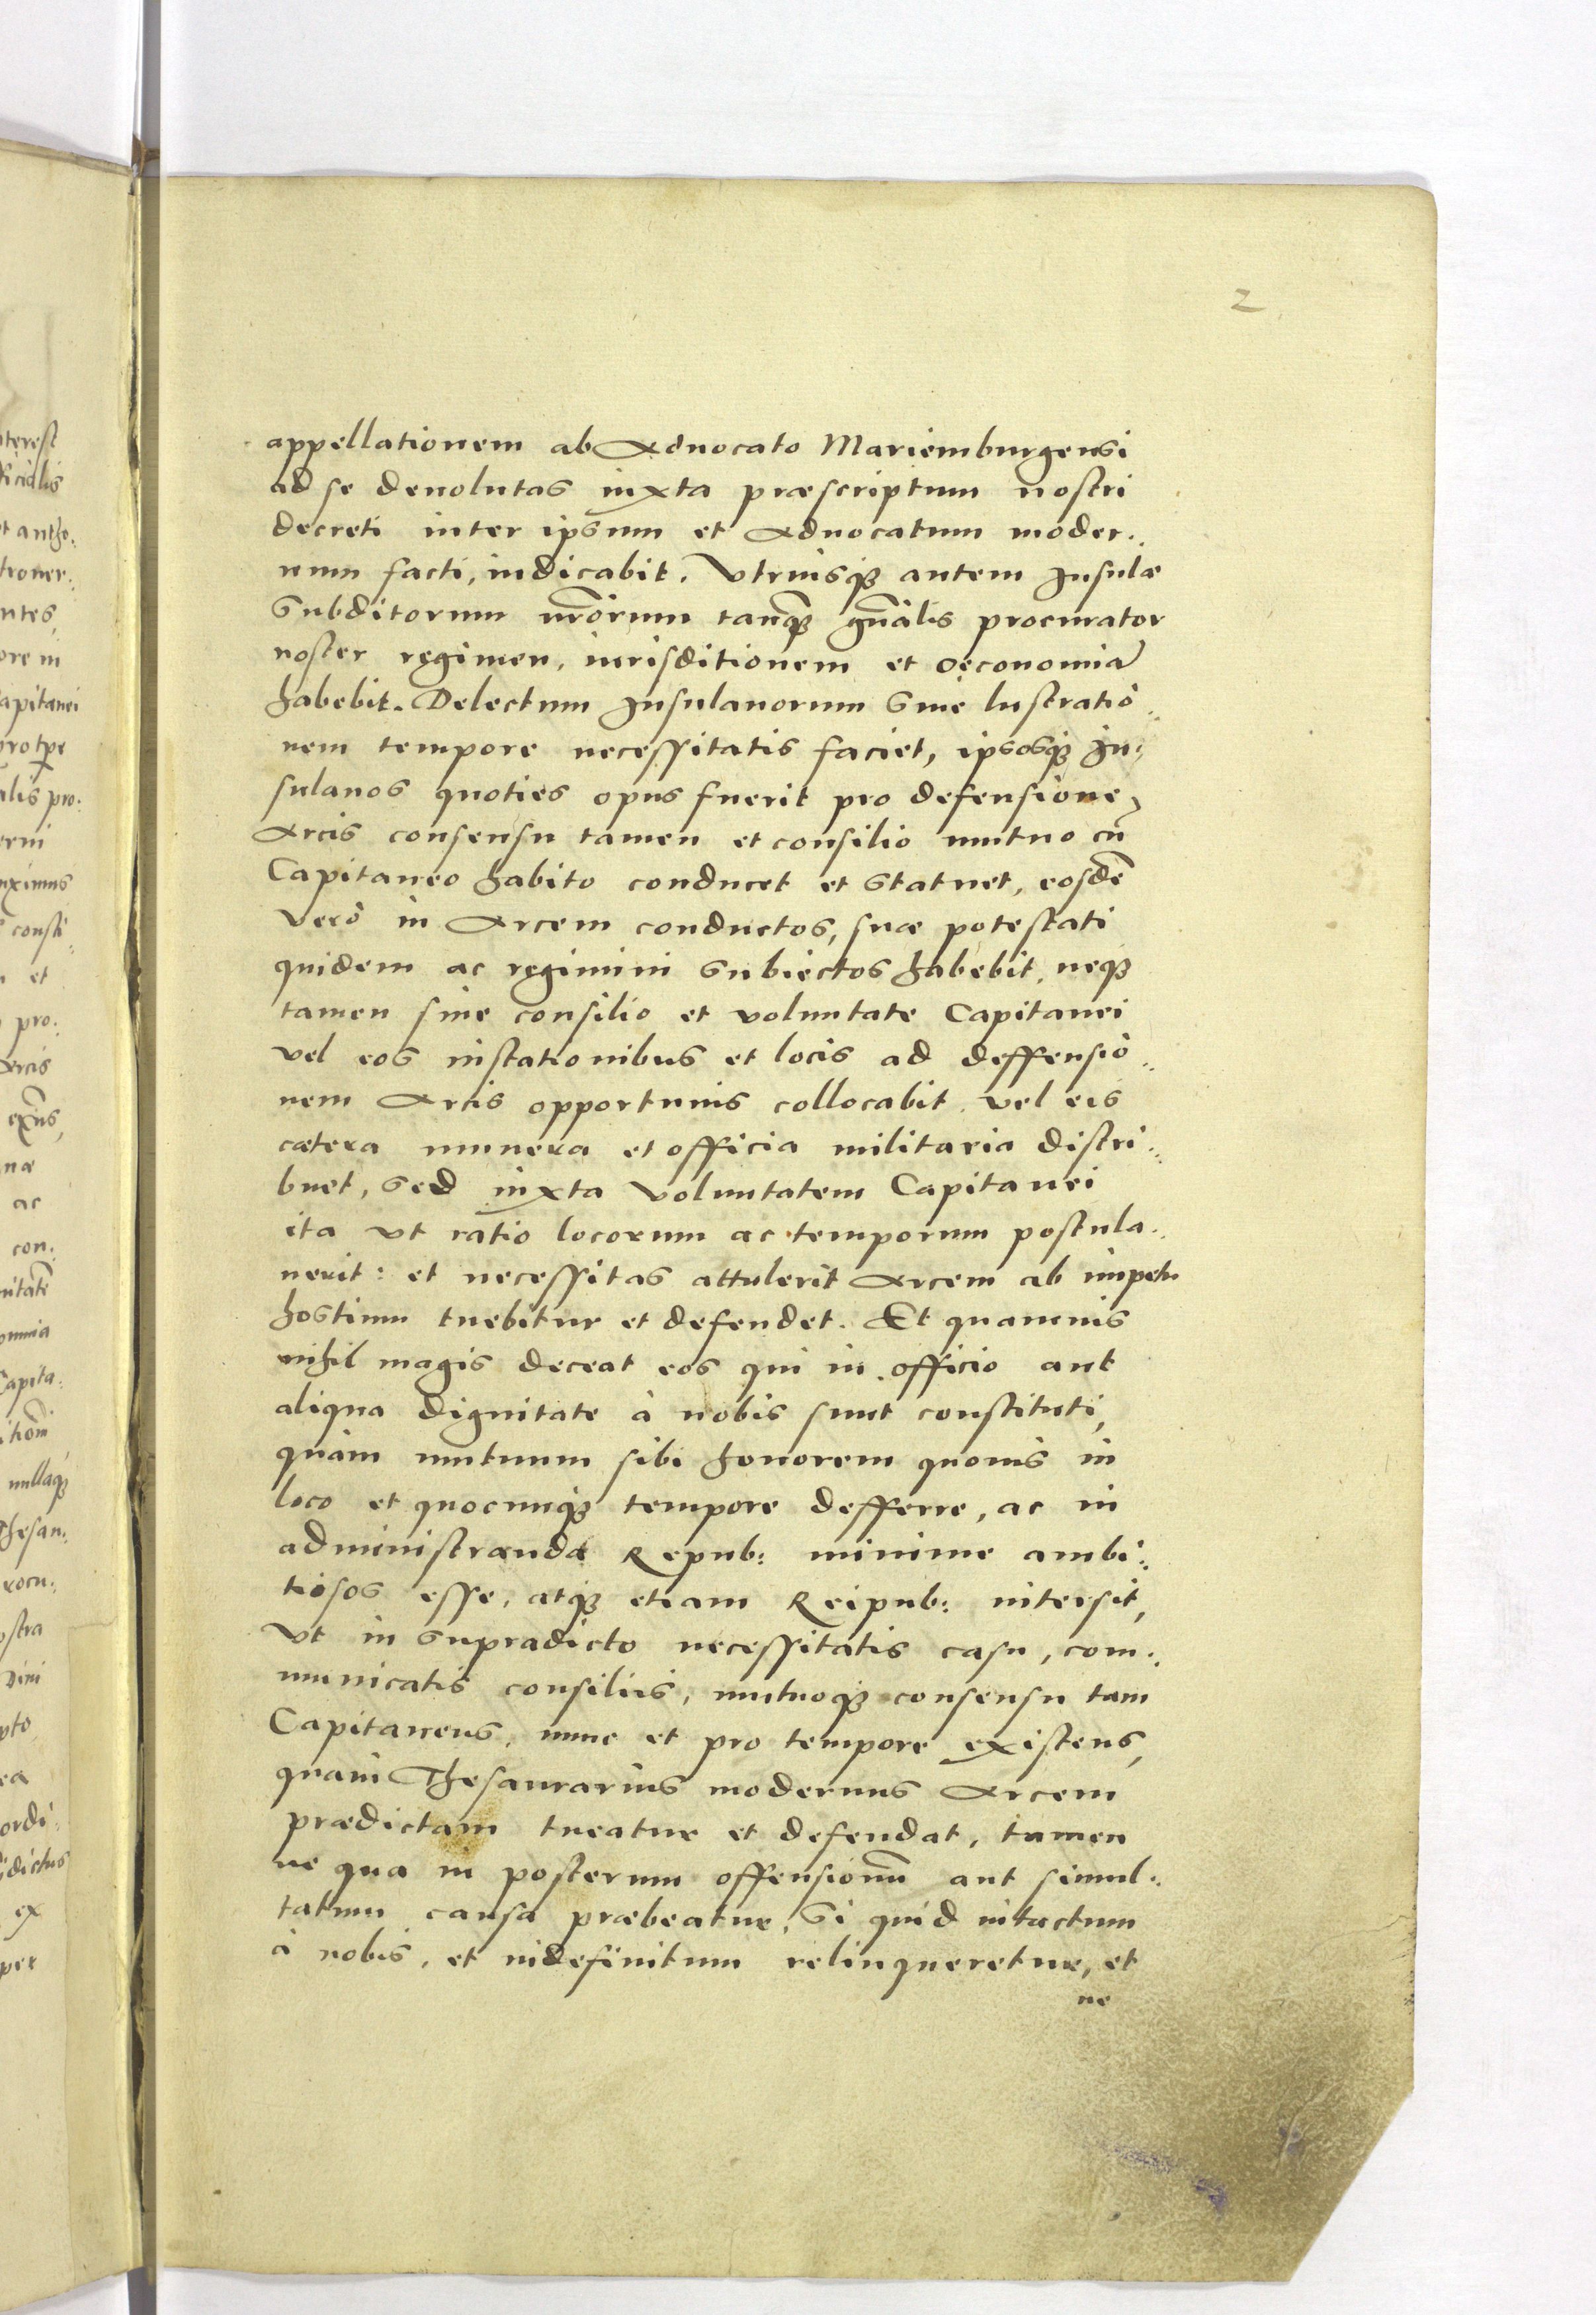 2
appellationem ab Aduocato Mariemburgensi
ad se deuolutas iuxta præscriptum nostri
decreti inter ipsum et Aduocatum moder..
num facti, iudicabit. Vtriusq3 autem Insulæ
Subditorum nr̃orum tanq̃3 gñalis procurator
noster regimen, iurisditionem et oeconomiã
habebit. Delectum Insulanorum siue lustratio..
nem tempore necessitatis faciet, ipsosq3 In:
sulanos quoties opus fuerit pro defensione
Arcis consensu tamen et consilio mutuo cũ
Capitaneo habito conducet et statuet, eosdẽ
verò in Arcem conductos, suæ potestati
quidem ac regimini subiectos habebit, neq3
tamen sine consilio et voluntate Capitanei
vel eos instationibus et locis ad deffensio..
nem Arcis opportunis collocabit vel eis
cætera munera et officia militaria distri..
buet, sed iuxta voluntatem Capitanei
ita vt ratio locorum ac temporum postula..
uerit: et necessitas attulerit Arcem ab impetu
hostium tuebitur et defendet. Et quamuis
nihil magis deceat eos qui in officio aut
aliqua dignitate à nobis sunt constituti,
quàm mutuum sibi honorem quouis in
loco et quocunq3 tempore defferre, ac in
administranda Repub: minime ambi..
tiosos esse, atq3 etiam Reipub: intersit,
Vt in supradicto necessitatis casu, com..
municatis consiliis, mutuoq3 consensu tam
Capitaneus, nunc et pro tempore existens,
quàm Thesaurarius modernus Arcem
prædictam tueatur et defendat, tamen
ne qua in posterum offensionũ aut simul..
tatum causa præbeatur, Si quid intactum
à nobis, et indefinitum relinqueretur, et
ne